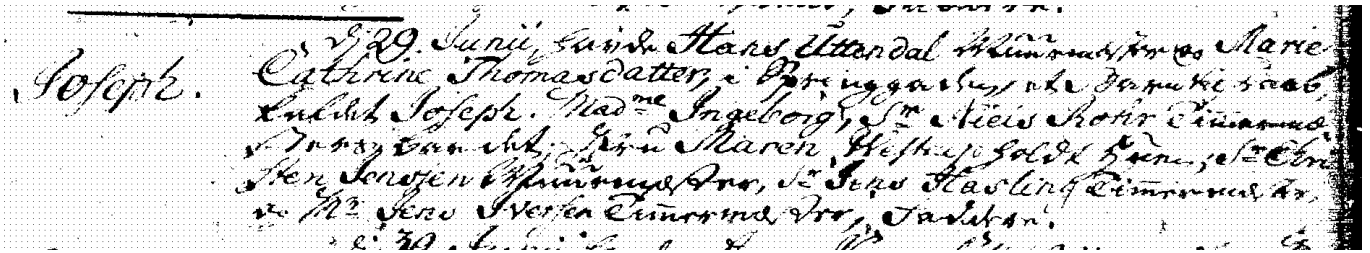 Joseph.
d. 29. Junii, havde Hans Uttendal Muurmester og Marie
Cathrine Thomasdatter, i Springgaden, et Barn til Daab,
kaldet Joseph. Madme Ingeborg, Sr Niels Rohr Timmermæ-
sters, bar det; Maren Westrup holdt Huen; Sr Chri-
sten Jensen Muurmæster, Sr Jens Hasling Timmermæster,
og Mr Jens Iversen Timmermæster, Faddere.
d. 30 Junii